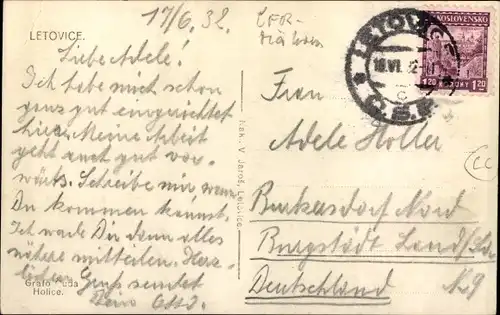 LETOVICE.
17/6. 32.
ČFR-
Liebe Adele!
Ich habe mich schon
ganz gut eingerichtet
hier. Meine Arbeit
geht auch gut vor-
wärts. Schreibe mir wenn
Du kommen kannst.
Ich werde Dir dann alles
nähere mitteilen. Herz-
lichen Gruß sendet
Dein Otto.
Grafo uda
Holice.
Nak. V. Jaroš, Letovice.
LETOVICE
16.VI.32
Č.S.R.
ČESKOSLOVENSKO
1.20 KORUNY 1.20
Frau
Adele Holler
Burkersdorf Nord
Burgstädt Land/Sa
Deutschland N9